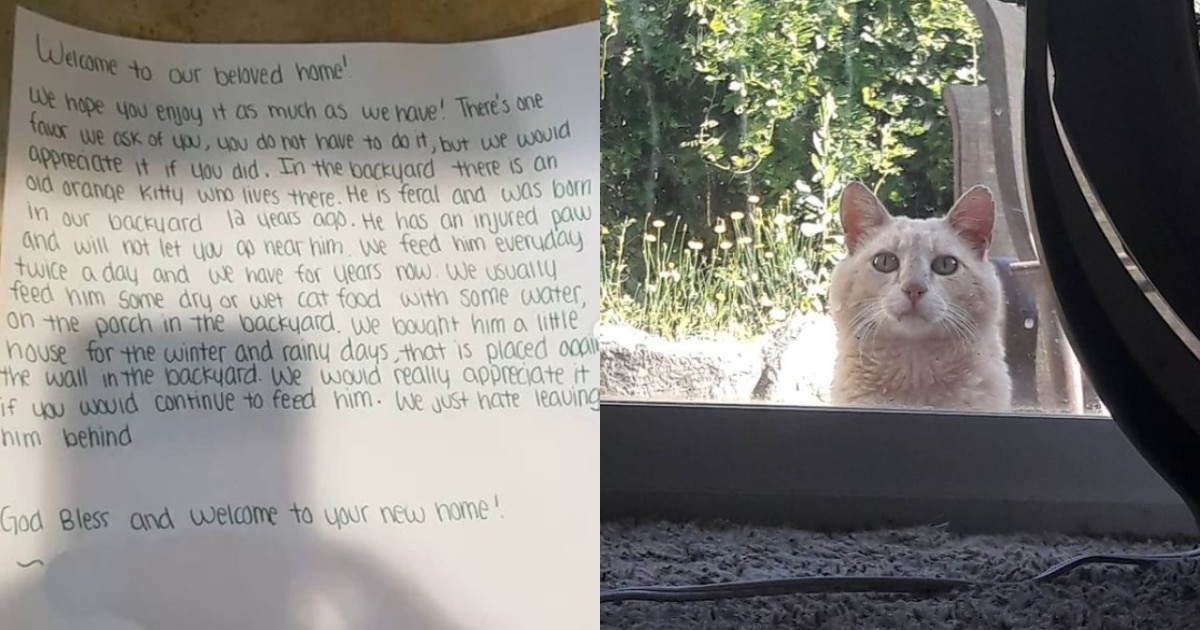 Welcome to our beloved home!
We hope you enjoy it as much as we have! There's one
favor we ask of you, you do not have to do it, but we would
appreciate it if you did. In the backyard there is an
old orange Kitty who lives there. He is feral and was born
in our backyard 12 years ago. He has an injured paw
and will not let you go near him. We feed him everyday
twice a day and we have for years now. We usually
feed him some dry or wet cat food with some water,
on the porch in the backyard. We bought him a little
house for the winter and rainy days, that is placed
the wall in the backyard. We would really appreciate it
if you would continue to feed him. We just hate leaving
him behind
God Bless and welcome to your new home!